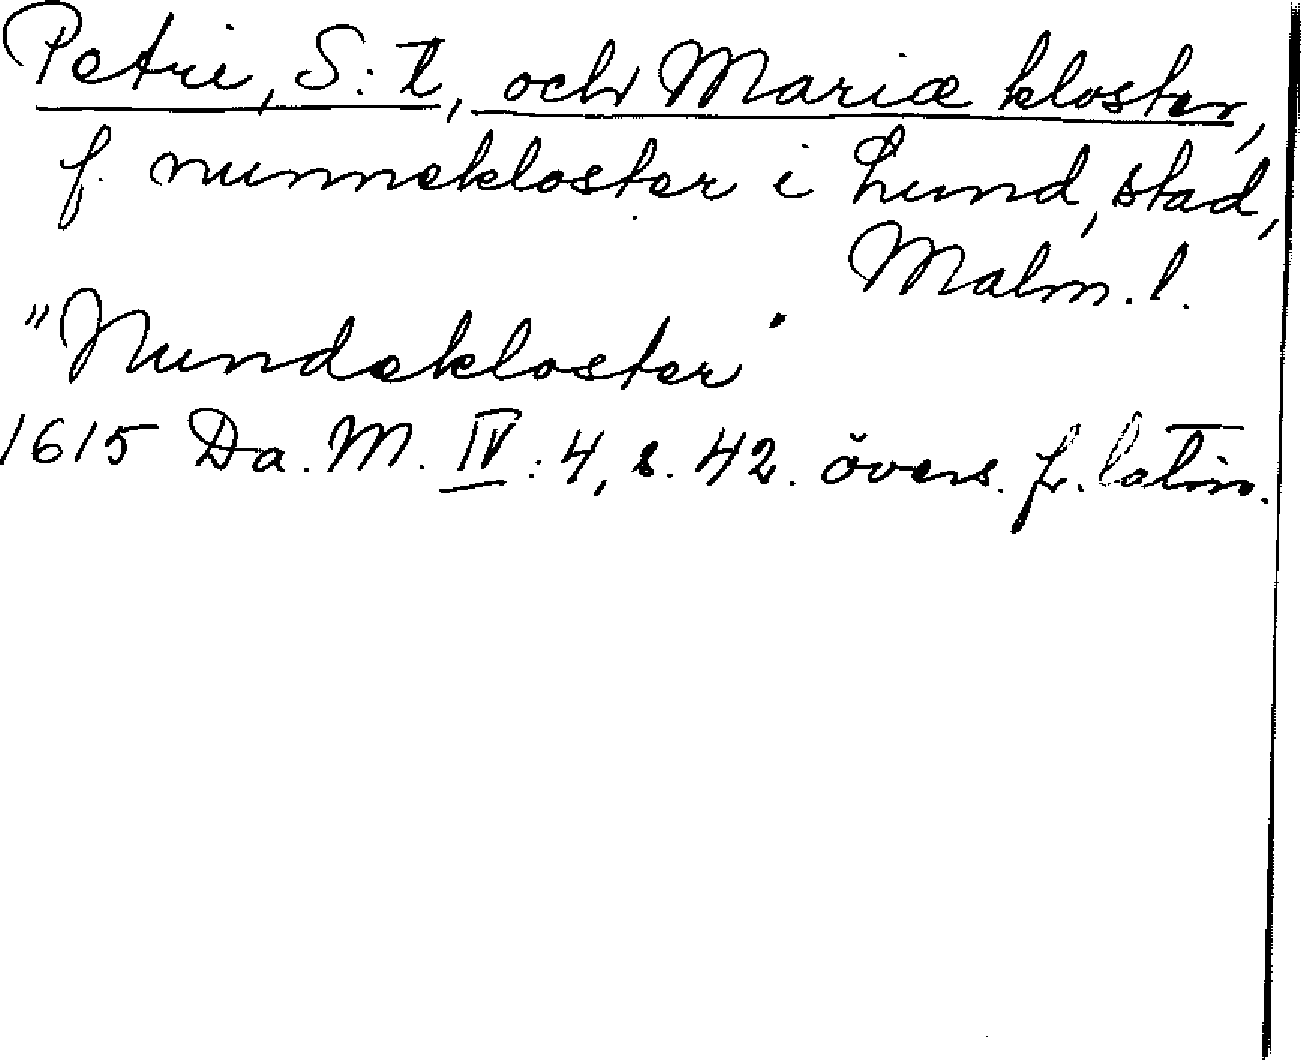 Petri, S:t, och Mariæ kloster,
f. nunnekloster i Lund, stad,
Malm. l.
"Nundekloster"
1615 Da. M. IV: 4, s. 42. övers. fr. latin.